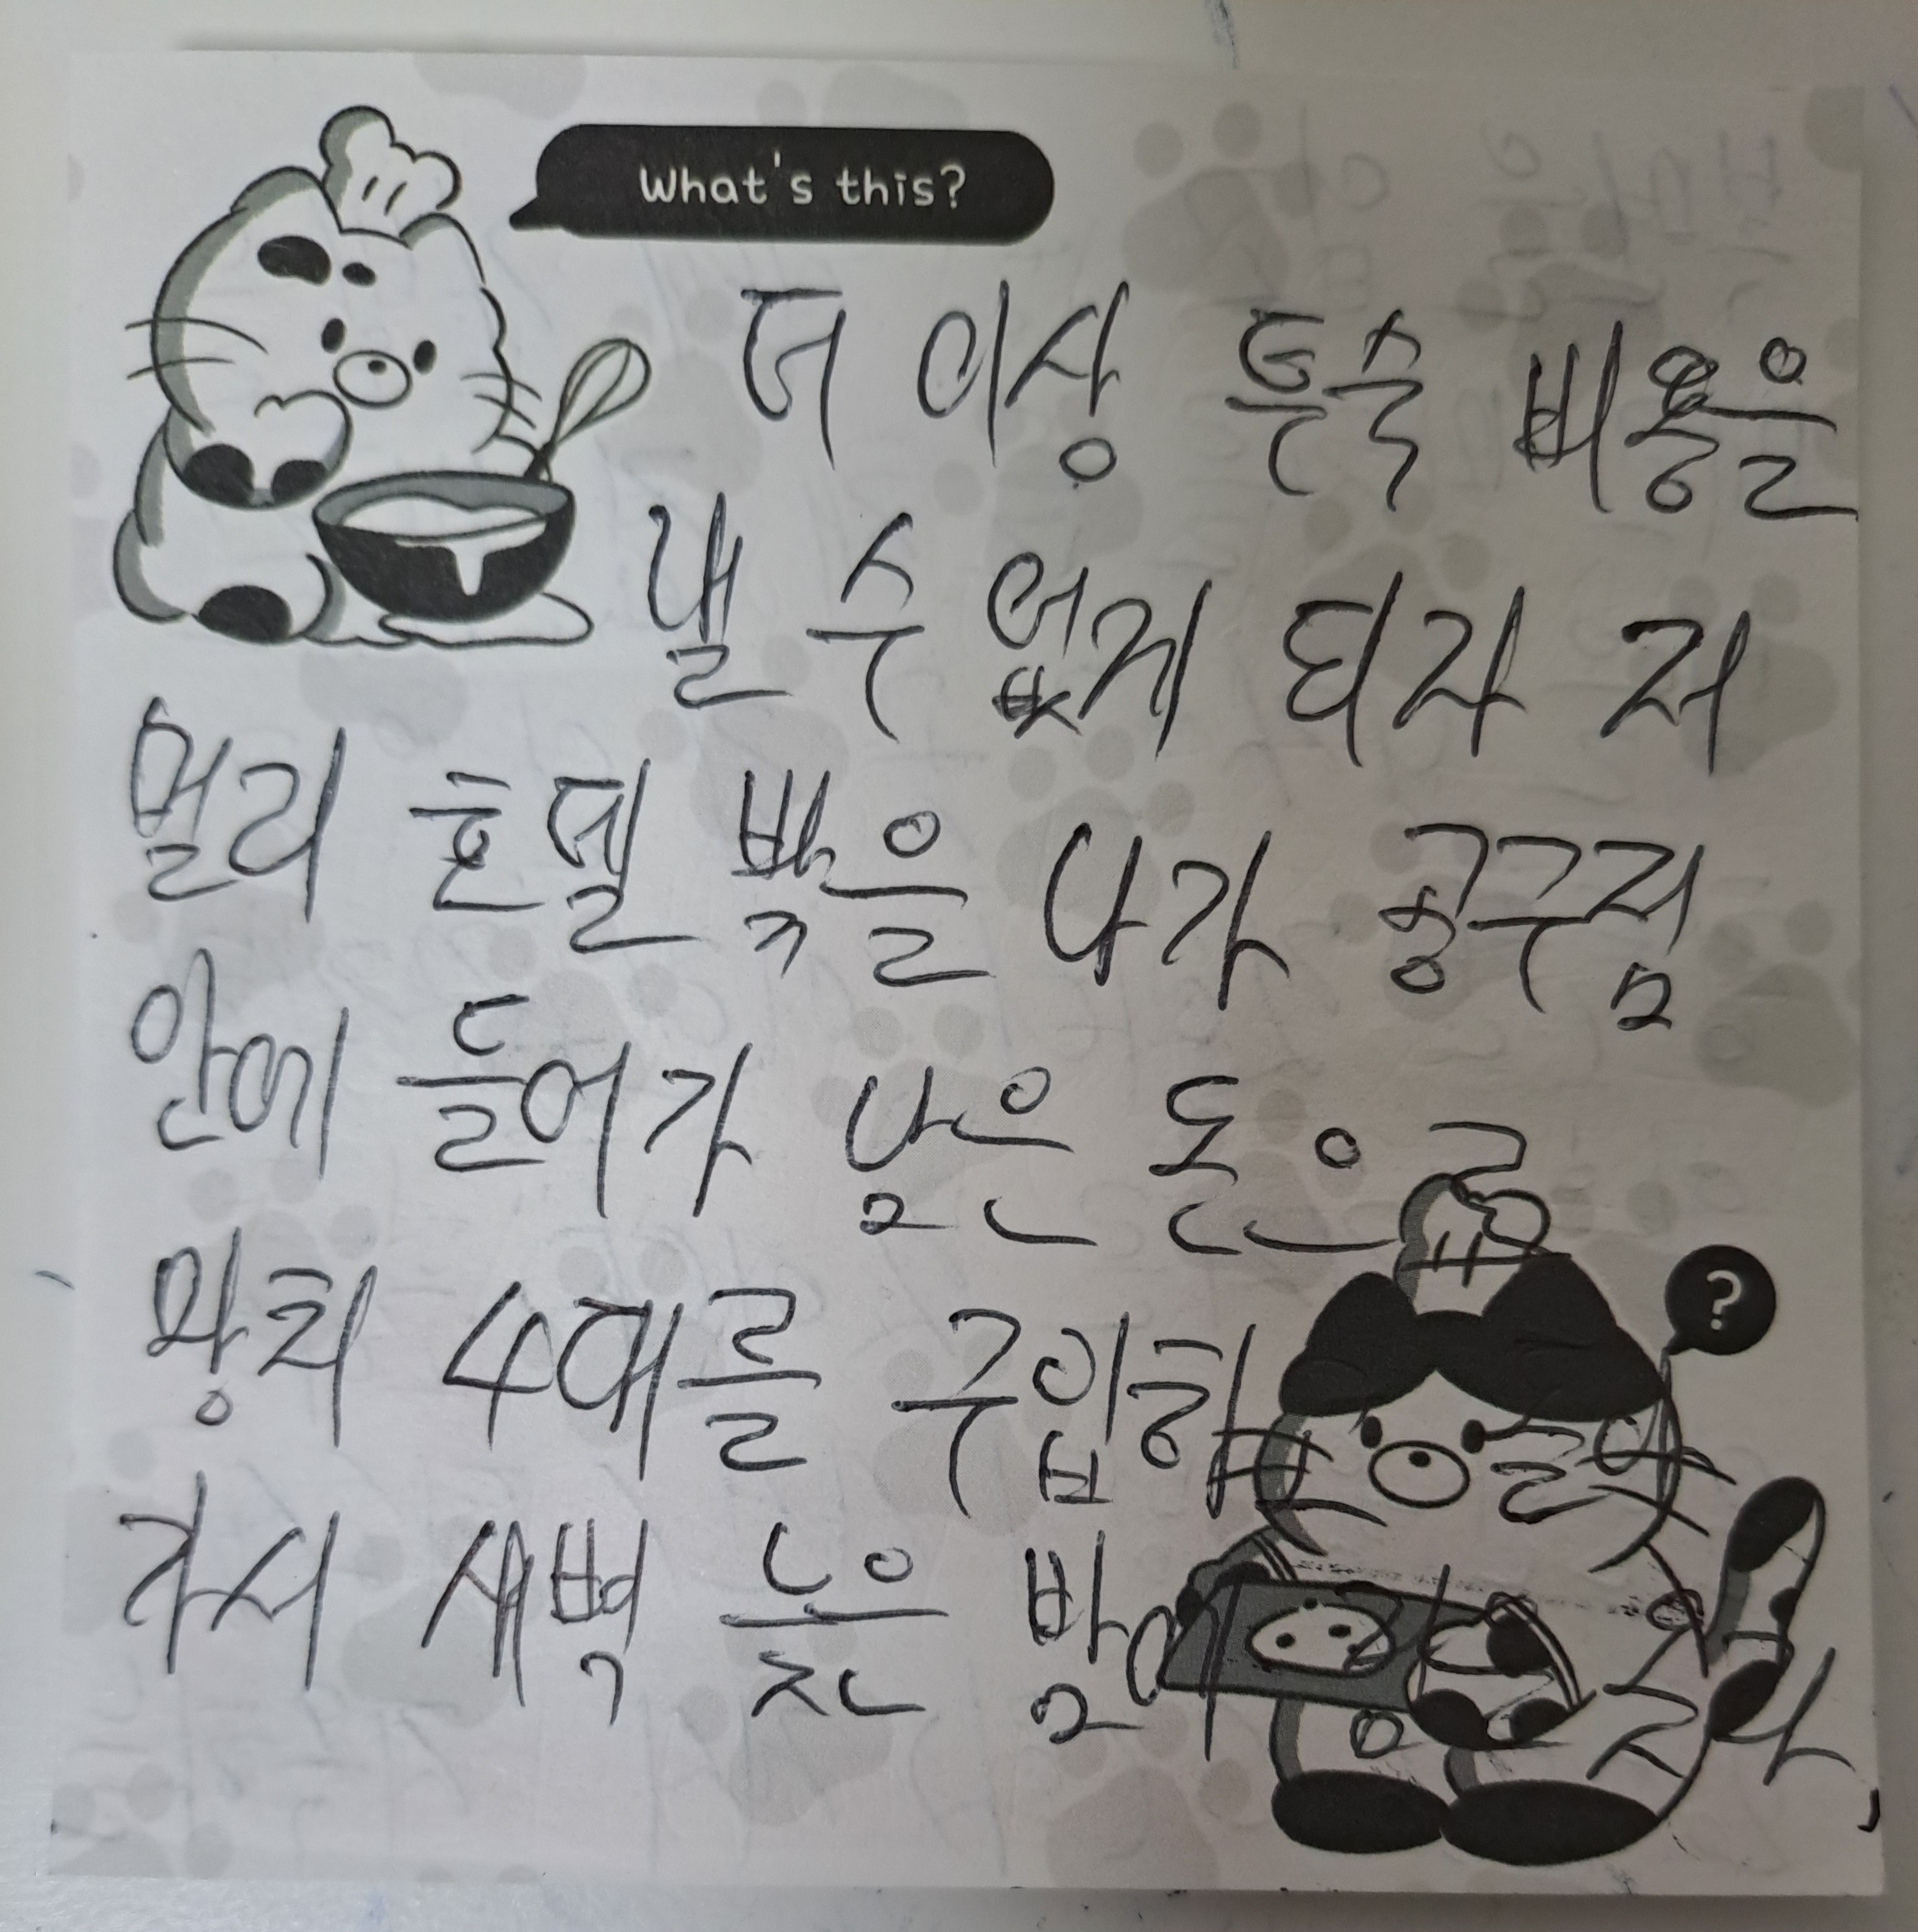 What's this?
더 이상 특수 비용을
낼 수 없게 되자 저
멀리 호텔 밖을 나가 공구점
안에 들어가 남은 돈으로
?
망치 4대를 구입하
가서 새벽 늦은 밤에